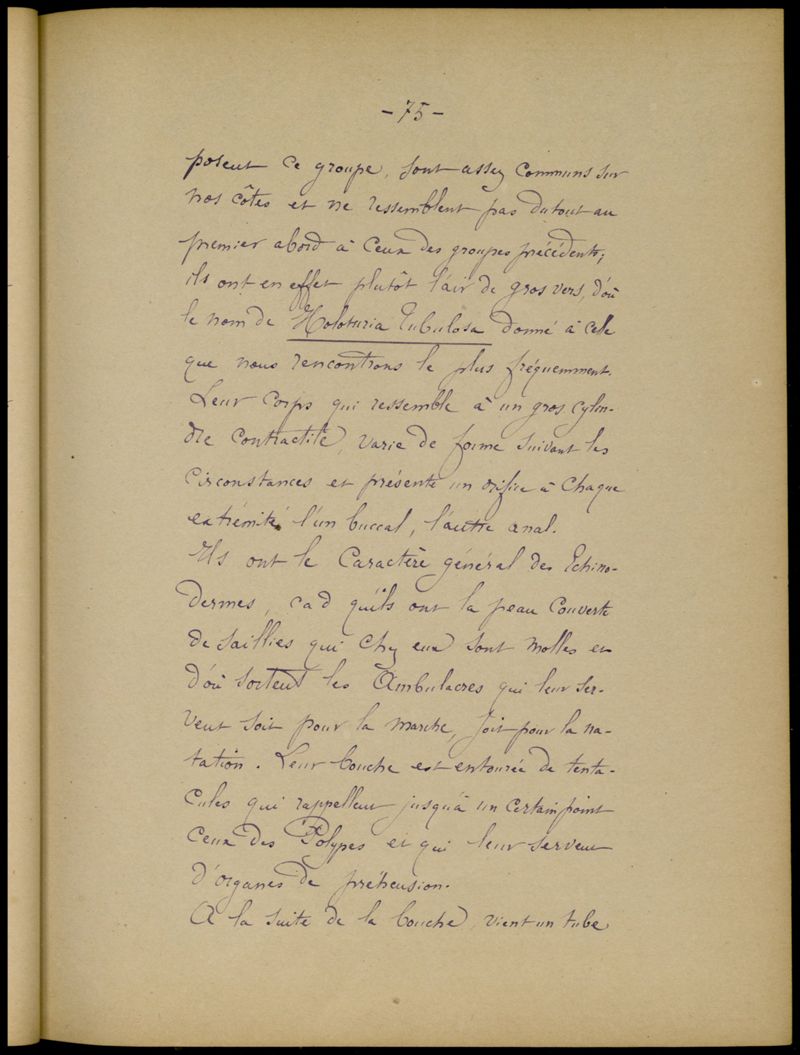 - 75 -
posent ce groupe, sont assez communs sur
nos côtes et ne ressemblent pas du tout au
premier abord à ceux des groupes précédents;
ils ont en effet plutôt l'air de gros vers, d'où
le nom de Holoturia Tubulosa donné à celle
que nous rencontrons le plus fréquemment.
Leur corps qui ressemble à un gros cylin-
dre contractile, varie de forme suivant les
circonstances et présente un orifice à chaque
extrémité l'un buccal, l'autre anal.
Ils ont le caractère général des Echino-
dermes, cad qu'ils ont la peau couverte
de saillies qui chez eux sont molles et
d'où sortent les Ambulacres qui leur ser-
vent soit pour la marche, soit pour la na-
tation. Leur bouche est entourée de tenta-
cules qui rappellent jusqu'à un certain point
ceux des Polypes et qui leur servent
d'organes de préhension.
A la suite de la bouche, vient un tube